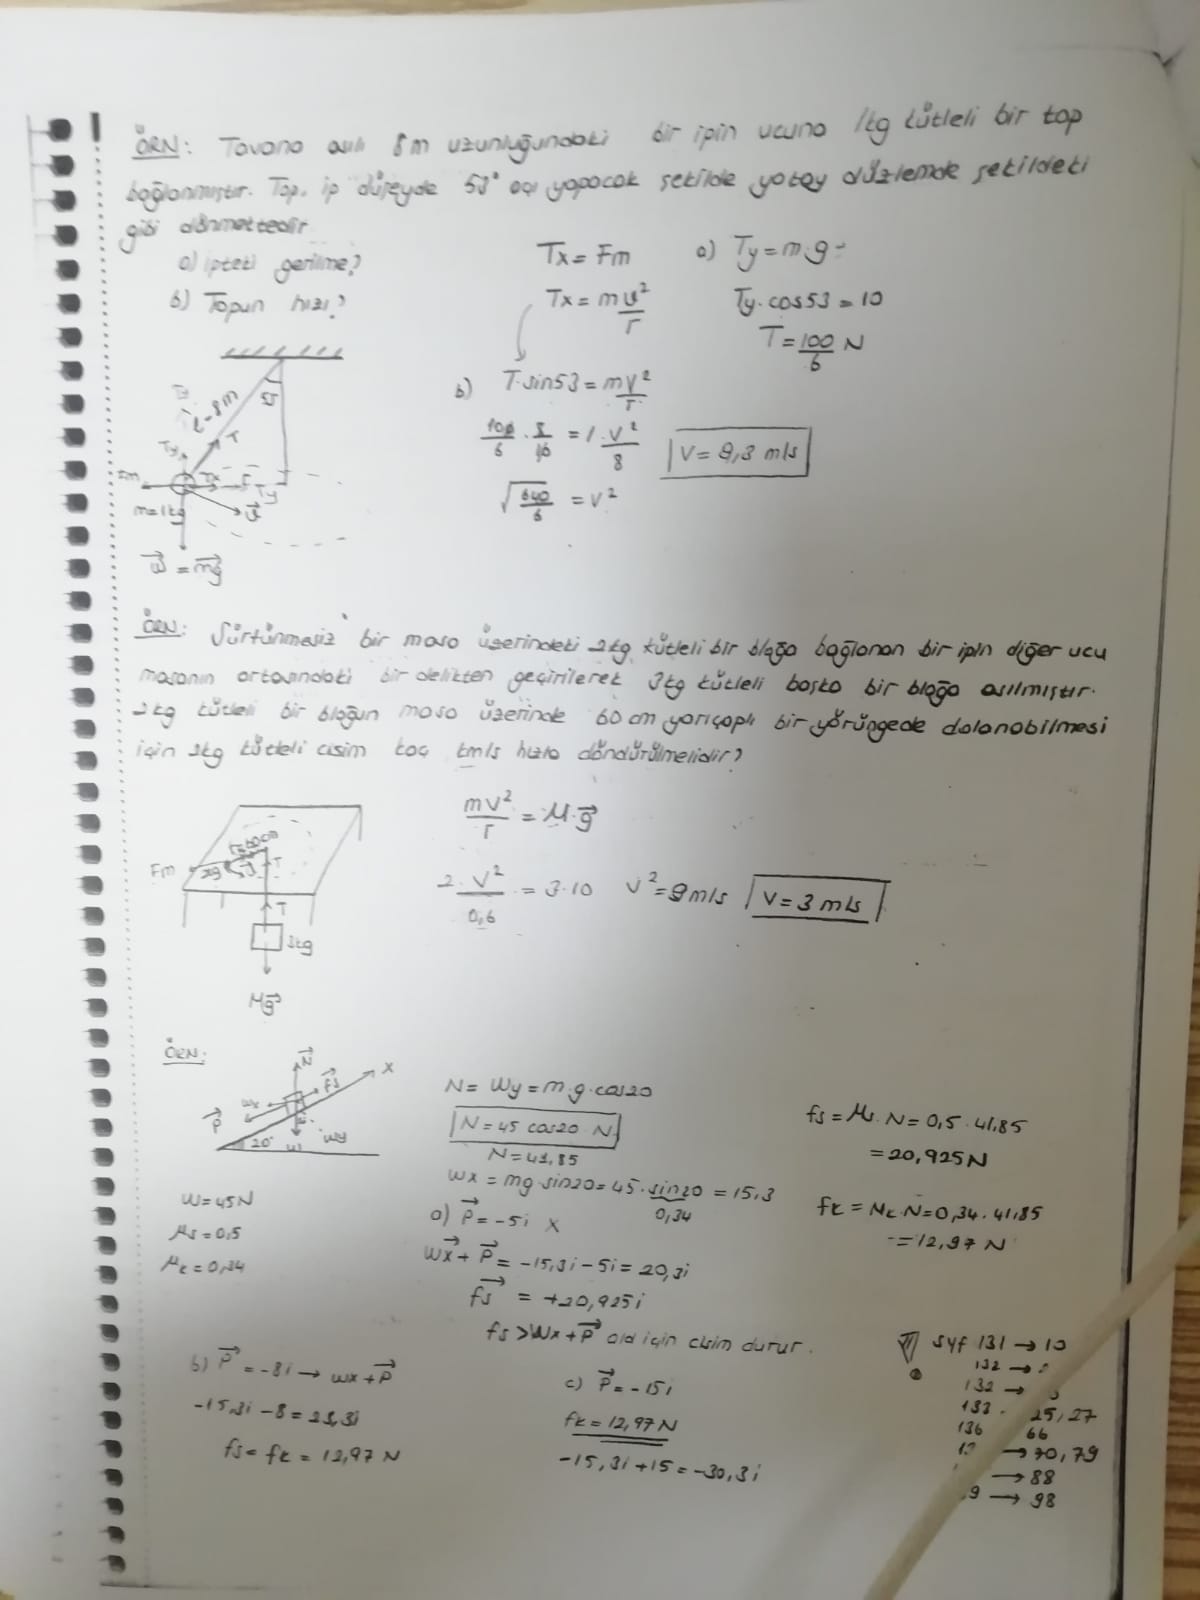 ÖRN: Tavana asılı 8m uzunluğundaki bir ipin ucuna 1kg kütleli bir top
bağlanmıştır. Top, ip düşeyde 53° açı yapacak şekilde yatay düzlemde şekildeki
gibi dönmektedir
a) ipteki gerilme?
b) Topun hızı?
Tx = Fm
Tx = m v²/r
a) Ty = m.g
Ty.cos53 = 10
T = 100/6 N
b) T.sin53 = mv²/r
100/6 . 8/10 = 1.v²/8
√640/6 = v²
V = 9,3 m/s
53
l = 8m
T
Ty
Tx
Fm
Ty
m=1kg
w = mg
ÖRN: Sürtünmesiz bir masa üzerindeki 2kg kütleli bir bloğa bağlanan bir ipin diğer ucu
masanın ortasındaki bir delikten geçirilerek 3kg kütleli başka bir bloğa asılmıştır.
2kg kütleli bir bloğun masa üzerinde 60 cm yarıçaplı bir yörüngede dolanabilmesi
için 2kg kütleli cisim kaç km/s hızla döndürülmelidir?
mv²/r = M.g
2.V²/0,6 = 3.10 V² = 9 m/s V = 3 m/s
r=60cm
Fm 2kg T
T
3kg
Mg
ÖRN:
N
fs
x
wx
P
20°
w
wy
w = 45N
μs = 0,5
μk = 0,34
N = Wy = m.g.cos20
N = 45 cos20 N
N = 41,85
wx = mg.sin20 = 45.sin20 = 15,3
0,34
fs = μs.N = 0,5.41,85
= 20,925N
fk = μk.N = 0,34.41,85
= 12,97 N
a) P = -5i x
wx + P = -15,3i - 5i = 20,3i
fs = +20,925i
fs > Wx + P old için cisim durur.
b) P = -8i → wx + P
-15,3i - 8 = 23,3i
fs = fk = 12,97 N
c) P = -15i
fk = 12,97 N
-15,3i + 15 = -30,3i
syf 131 → 10
132 →
132 →
133 25, 27
136 66
→ 70, 79
→ 88
9 → 98